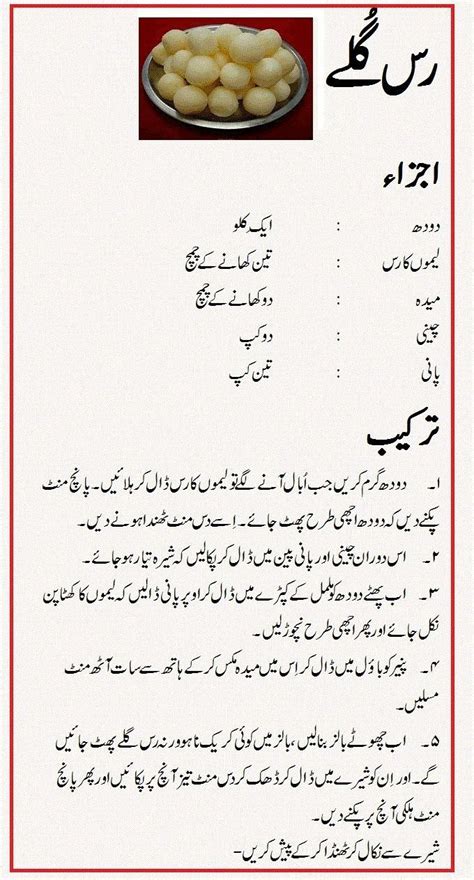 رس گُلے
اجزاء
دودھ : ایک کلو
لیموں کا رس : تین کھانے کے چمچ
میدہ : دو کھانے کے چمچ
چینی : دو کپ
پانی : تین کپ
ترکیب
۱۔ دودھ گرم کریں جب اُبال آنے لگے تو لیموں کا رس ڈال کر ہلائیں۔ پانچ منٹ
پکنے دیں کہ دودھ اچھی طرح پھٹ جائے۔ اِسے دس منٹ ٹھنڈا ہونے دیں۔
۲۔ اس دوران چینی اور پانی پین میں ڈال کر پکا لیں کہ شیرہ تیار ہو جائے۔
۳۔ اب پھٹے دودھ کو ململ کے کپڑے میں ڈال کر اوپر پانی ڈالیں کہ لیموں کا کھٹا پن
نکل جائے اور پھر اچھی طرح نچوڑ لیں۔
۴۔ پنیر کو باؤل میں ڈال کر اِس میں میدہ مکس کر کے ہاتھ سے سات آٹھ منٹ
مسلیں۔
۵۔ اب چھوٹے بالز بنا لیں، بالز میں کوئی کریک نا ہو ورنہ رس گلے پھٹ جائیں
گے۔ اور اِن کو شیرے میں ڈال کر ڈھک کر دس منٹ تیز آنچ پر پکائیں اور پھر پانچ
منٹ ہلکی آنچ پر پکنے دیں۔
شیرے سے نکال کر ٹھنڈا کر کے پیش کریں-